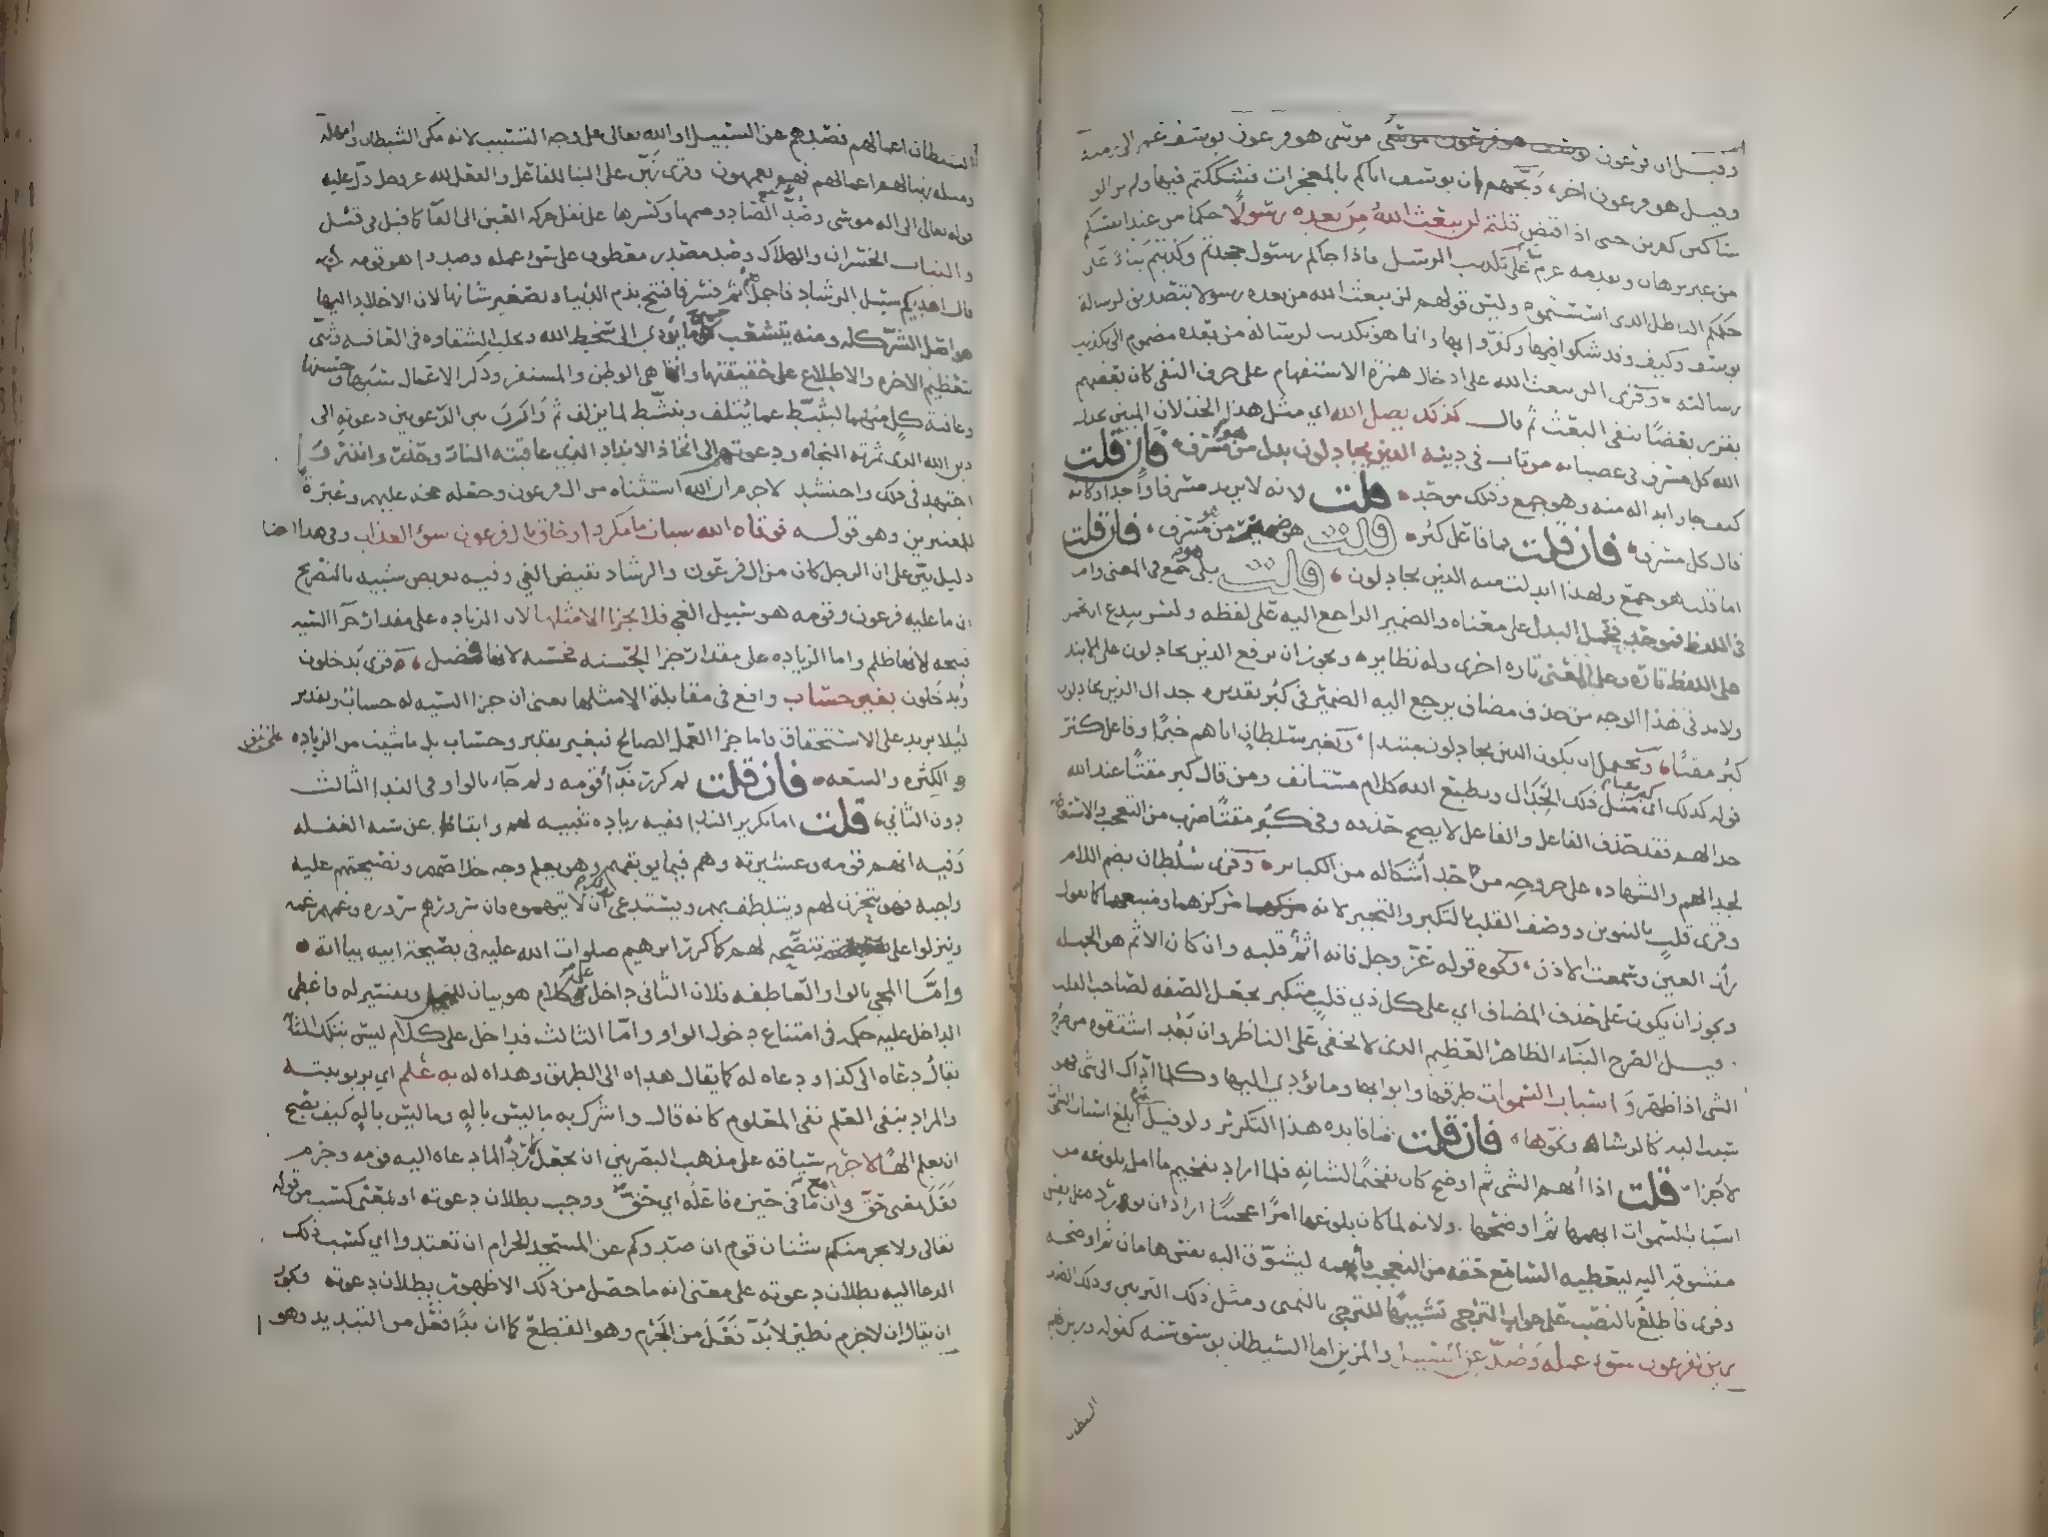 وقيل ان فرعون موسى هو فرعون يوسف عمر الى زمنه
وقيل هو فرعون اخر، وبخهم بان يوسف اتاكم بالمعجزات فشككتم فيها ولم تزالوا
شاكين كفرين حتى اذا قبض قلتم لن يبعث الله من بعده رسولا حكما من عند انفسكم
من غير برهان وتقدمه عزم على تكذيب الرسل فاذا جاكم رسول جحدتم وكذبتم بناء على
حكمكم الباطل الذى اسستموه وليس قولهم لن يبعث الله من بعده رسولا بتصديق لرسالة
يوسف وكيف وقد شكوا فيها وكفروا بها وانما هو تكذيب لرسالة من بعده مضموم الى تكذيب
رسالته وقرى الن يبعث الله على ادخال همزة الاستفهام على حرف النفى كان بعضهم
يقرر بعضا بنفى البعث ثم قال كذلك يضل الله اي مثل هذا الخذلان المبين يخذل
الله كل مسرف فى عصيانه مرتاب فى دينه الذين يجادلون بدل من هو مسرف فان قلت
كيف جاز ابداله منه وهو جمع وذلك موحد قلت لانه لا يريد مسرفا واحدا وكانه
قال كل مسرف فان قلت فما فاعل كبر قلت هو ضمير من هو مسرف فان قلت
اما قلت هو جمع ولهذا ابدلت منه الذين يجادلون قلت بلى هو جمع فى المعنى واما
فى اللفظ فموحد فحمل البدل على معناه والضمير الراجع اليه على لفظه وليس ببدع ان يحمل
على اللفظ تارة وعلى المعنى تارة اخرى وله نظاير ويجوز ان يرفع الذين يجادلون على الابتدا
ولا بد فى هذا الوجه من حذف مضاف يرجع اليه الضمير فى كبر تقديره جدال الذين يجادلون
كبر مقتا ويحتمل ان يكون الذين يجادلون مبتدا وبغير سلطان اتاهم خبرا وفاعل كبر
قوله كذلك اى كبر مقتا مثل ذلك الجدال ويطبع الله كلام مستانف ومن قال كبر مقتا عند الله
جدالهم فقد حذف الفاعل والفاعل لا يصح حذفه وفى كبر مقتا ضرب من التعجب والاستعظام
لجدالهم والشهاده على خروجه من حد اشكاله من الكباير وقرى سلطان بضم اللام
وقرى قلب بالتنوين ووصف القلب بالتكبر والتجبر لانه مركزهما ومنبعهما كما تقول
رات العين وسمعت الاذن ونحوه قوله عز وجل فانه اثم قلبه وان كان الاثم هو الجملة
ويجوز ان يكون على حذف المضاف اي على كل ذي قلب متكبر بجعل الصفه لصاحب القلب
وقيل الصرح البناء الظاهر العظيم الذى لا يخفى على الناظر وان بعد اشتقوه من صرح
الشى اذا ظهر و اسباب السموات طرقها وابوابها وما يؤدي اليها وكلما اداك الى شى فهو
سبب اليه كالرشاء ونحوها فان قلت ما فايدة هذا التكرير ولو قيل لعلى ابلغ اسباب السموات
لاجزا قلت اذا ابهم الشى ثم اوضح كان تفخيما لشانه فلما اراد تفخيم ما امل بلوغه من
اسباب السموات ابهمها ثم اوضحها ولانه لما كان بلوغها امرا عجيبا اراد ان يورده على نفس
متشوقة اليه ليعطيه السامع حقه من التعجب فابهمه ليشوف اليه نفس هامان ثم اوضحه
وقرى فاطلع بالنصب على جواب الترجى تشبيها للترجي بالتمنى ومثل ذلك التزيين وذلك الصد
زين لفرعون سوء عمله وصد عن السبيل والمزين اما الشيطان بوسوسته كقوله وزين لهم
الشيطان اعمالهم فصدهم عن السبيل او الله تعالى على وجه التسبيب لانه مكن الشيطان وامهله
ومثله زينا لهم اعمالهم فهم يعمهون وقرى زين على البنا للفاعل والفعل لله عز وجل دل عليه
قوله تعالى الى اله موسى وصد بفتح الصاد وضمها وكسرها على نقل حركة العين الى الفا كما قيل فى قتل
والتباب الخسران والهلاك وصد مصدر معطوف على سوء عمله وصدوا هو وقومه
قال اهديكم سبيل الرشاد فاجمل لهم ثم فسر فافتتح بذم الدنيا وتصغير شانها لان الاخلاد اليها
هو اصل الشر كله ومنه يتشعب جميع ما يؤدي الى سخط الله ويجلب الشقاوه فى العاقبه وثنى
بتعظيم الاخره والاطلاع على حقيقتها وانها هى الوطن والمستقر وذكر الاعمال سيئها وحسنها
وعاقبة كل منهما ليثبط عما يتلف وينشط لما يزلف ثم وازن بين الدعوتين دعوته الى
دين الله الذى ثمرته النجاة ودعوتهم الى اتخاذ الانداد الذي عاقبته النار وحذر وانذر و
اجتهد فى ذلك واحتشد لا جرم ان الله استثناه من ال فرعون وجعله حجة عليهم وعبرة
للمعتبرين وهو قوله فوقاه الله سيات ما مكروا وحاق بال فرعون سوء العذاب وفى هذا ايضا
دليل بين على ان الرجل كان من ال فرعون والرشاد نقيض الغى وفيه تعريض شبيه بالتصريح
ان ما عليه فرعون وقومه هو سبيل الغى فلا يجزا الا مثلها لان الزياده على مقدار جزا السيه
قبيحه لانها ظلم واما الزياده على مقدار جزا الحسنه فحسنه لانها فضل، وقرى يدخلون
ويدخلون بغير حساب واقع فى مقابلة الا مثلها يعنى ان جزا السيه له حساب وتقدير
ليلا يزيد على الاستحقاق فاما جزا العمل الصالح فبغير تقدير وحساب بل ما شيت من الزياده على الحق
والكثره والسعه فان قلت لم كرر ندا قومه ولم جاء بالواو فى الندا الثالث
دون الثاني، قلت اما تكرير الندا ففيه زياده تنبيه لهم وايقاظ عن سنة الغفله
وفيه انهم قومه وعشيرته وهم فيما يوبقهم وهو يعلم وجه خلاصهم ونصيحتهم عليه
واجبه فهو يتحزن لهم ويتلطف بهم ويستدعى بذلك ان لا يتهموه فان سرورهم سروره وغمهم غمه
وينزلوا على نصيحه لهم كما كرر ابرهيم صلوات الله عليه فى نصيحة ابيه يا ابة
واما المجى بالواو العاطفه فلان الثانى داخل على كلام هو بيان للمجمل وتفسير له فاعطى
الداخل عليه حكمه فى امتناع دخول الواو واما الثالث فداخل على كلام ليس بتلك المثابة
يقال دعاه الى كذا ودعاه له كما يقال هداه الى الطريق وهداه له به علم اي بربوبيته
والمراد بنفى العلم نفى المعلوم كانه قال واشرك به ما ليس باله وما ليس باله كيف يصح
ان يعلم الها لا جرم سياقه على مذهب البصريين ان يجعل لا ردا لما دعاه اليه قومه وجرم
فعل بمعنى حق وان مع ما فى حيزه فاعله اي حق ووجب بطلان دعوته او بمعنى كسب من قوله
تعالى ولا يجرمنكم شنان قوم ان صدوكم عن المسجد الحرام ان تعتدوا اي كسب ذلك
الدعا اليه بطلان دعوته على معنى انه ما حصل من ذلك الا ظهور بطلان دعوته ويجوز
ان يقال ان لا جرم نظير لا بد فعل من الجرم وهو القطع كما ان بدا فعل من التبديد وهو